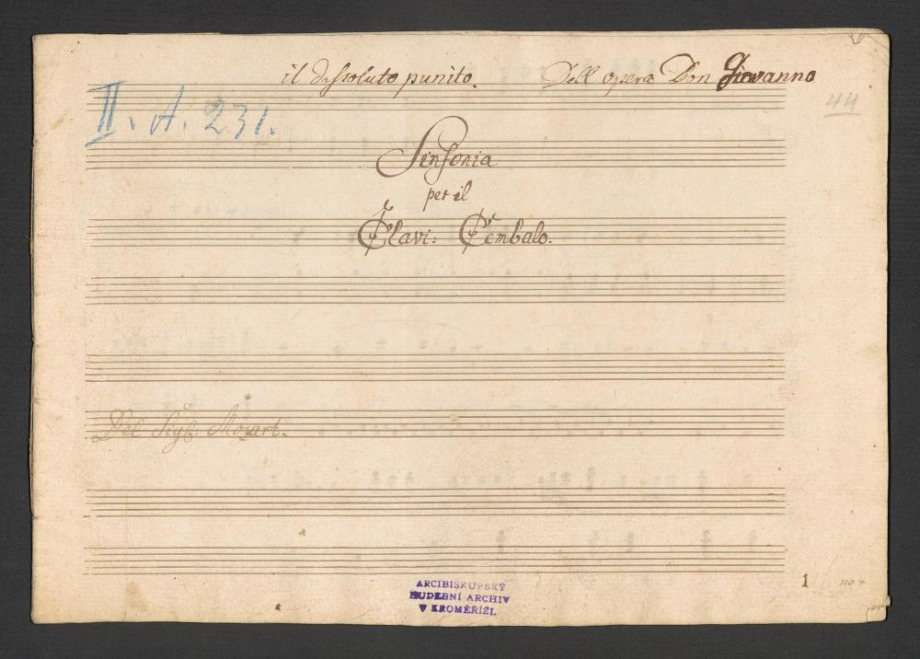 il dissoluto punito. Dell opera Don Giovanno
44
II. A. 231.
Sinfonia
per il
Clavi: Cembalo.
Del Sigł: Mozart.
1
ARCIBISKUPSKÝ
HUDEBNÍ ARCHIV
V KROMĚŘÍŽI.